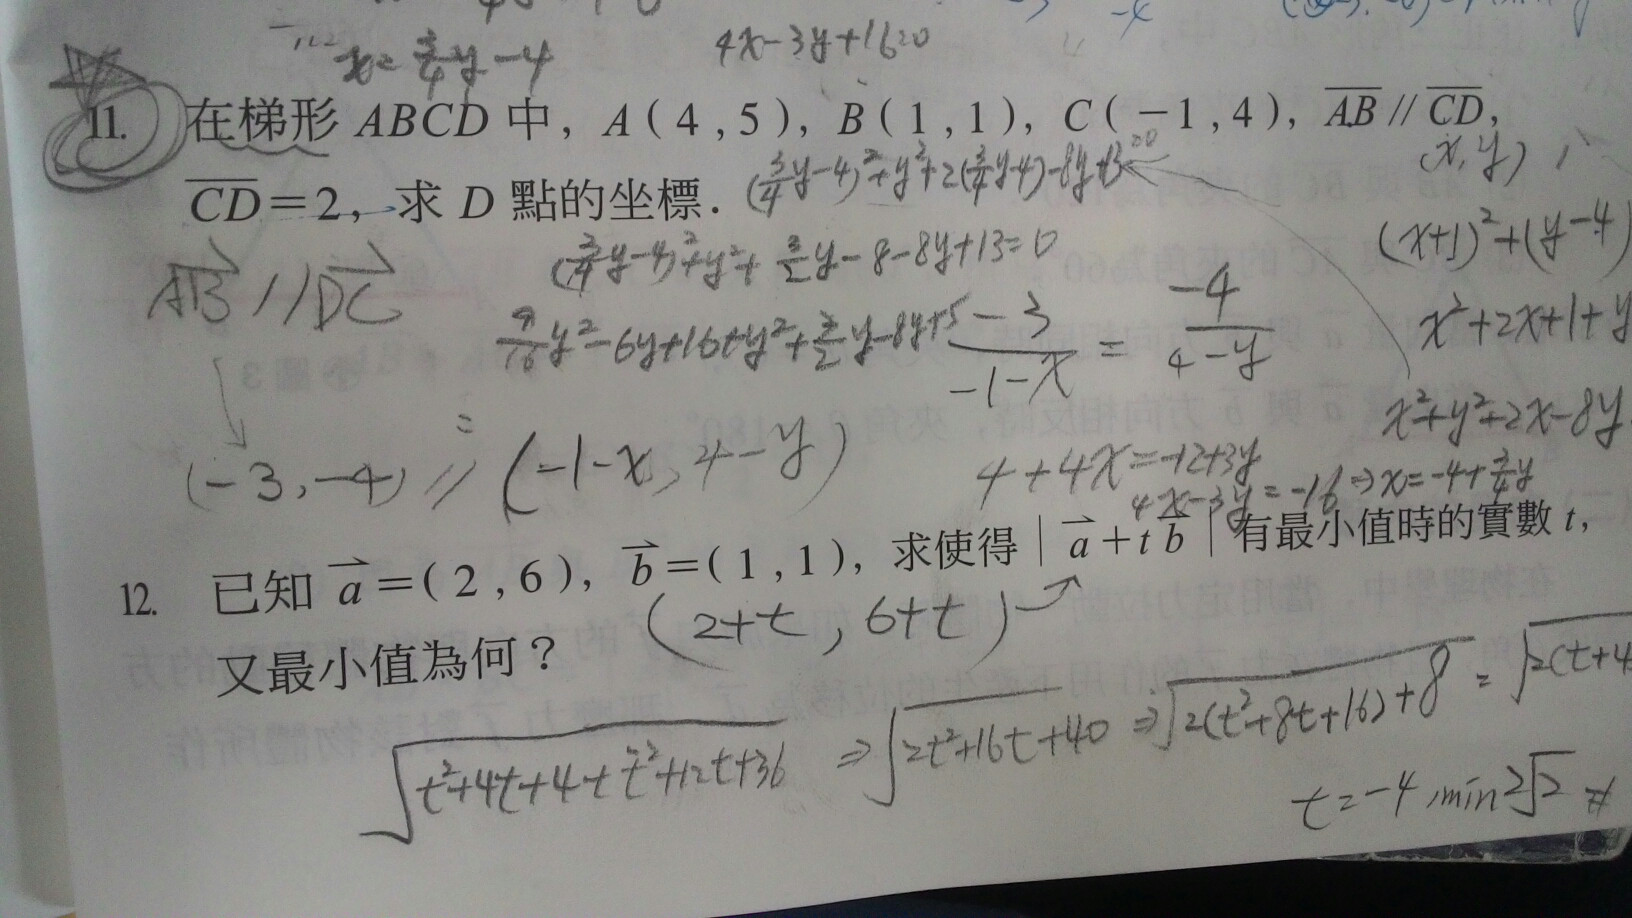 x=3/4y-4
4x-3y+16=0
11. 在梯形 ABCD 中，A(4,5)，B(1,1)，C(-1,4)，AB // CD，
(x,y)
CD=2，求 D 點的坐標．
(3/4y-4)²+y²+2(3/4y-4)-8y+13=0
(x+1)²+(y-4)
(3/4y-4)²+y²+3/2y-8-8y+13=0
AB // DC
9/16y²-6y+16+y²+3/2y-8y+5
-3/-1-x = -4/4-y
x²+2x+1+y
x²+y²+2x-8y
(-3,-4) // (-1-x,4-y)
4+4x=-12+3y
4x-3y=-16⇒x=-4+3/4y
12. 已知 a=(2,6)，b=(1,1)，求使得 | a+tb | 有最小值時的實數 t，
(2+t,6+t)
又最小值為何？
√t²+4t+4+t²+12t+36 ⇒√2t²+16t+40 ⇒√2(t²+8t+16)+8 = √2(t+4
t=-4,min2√2 #